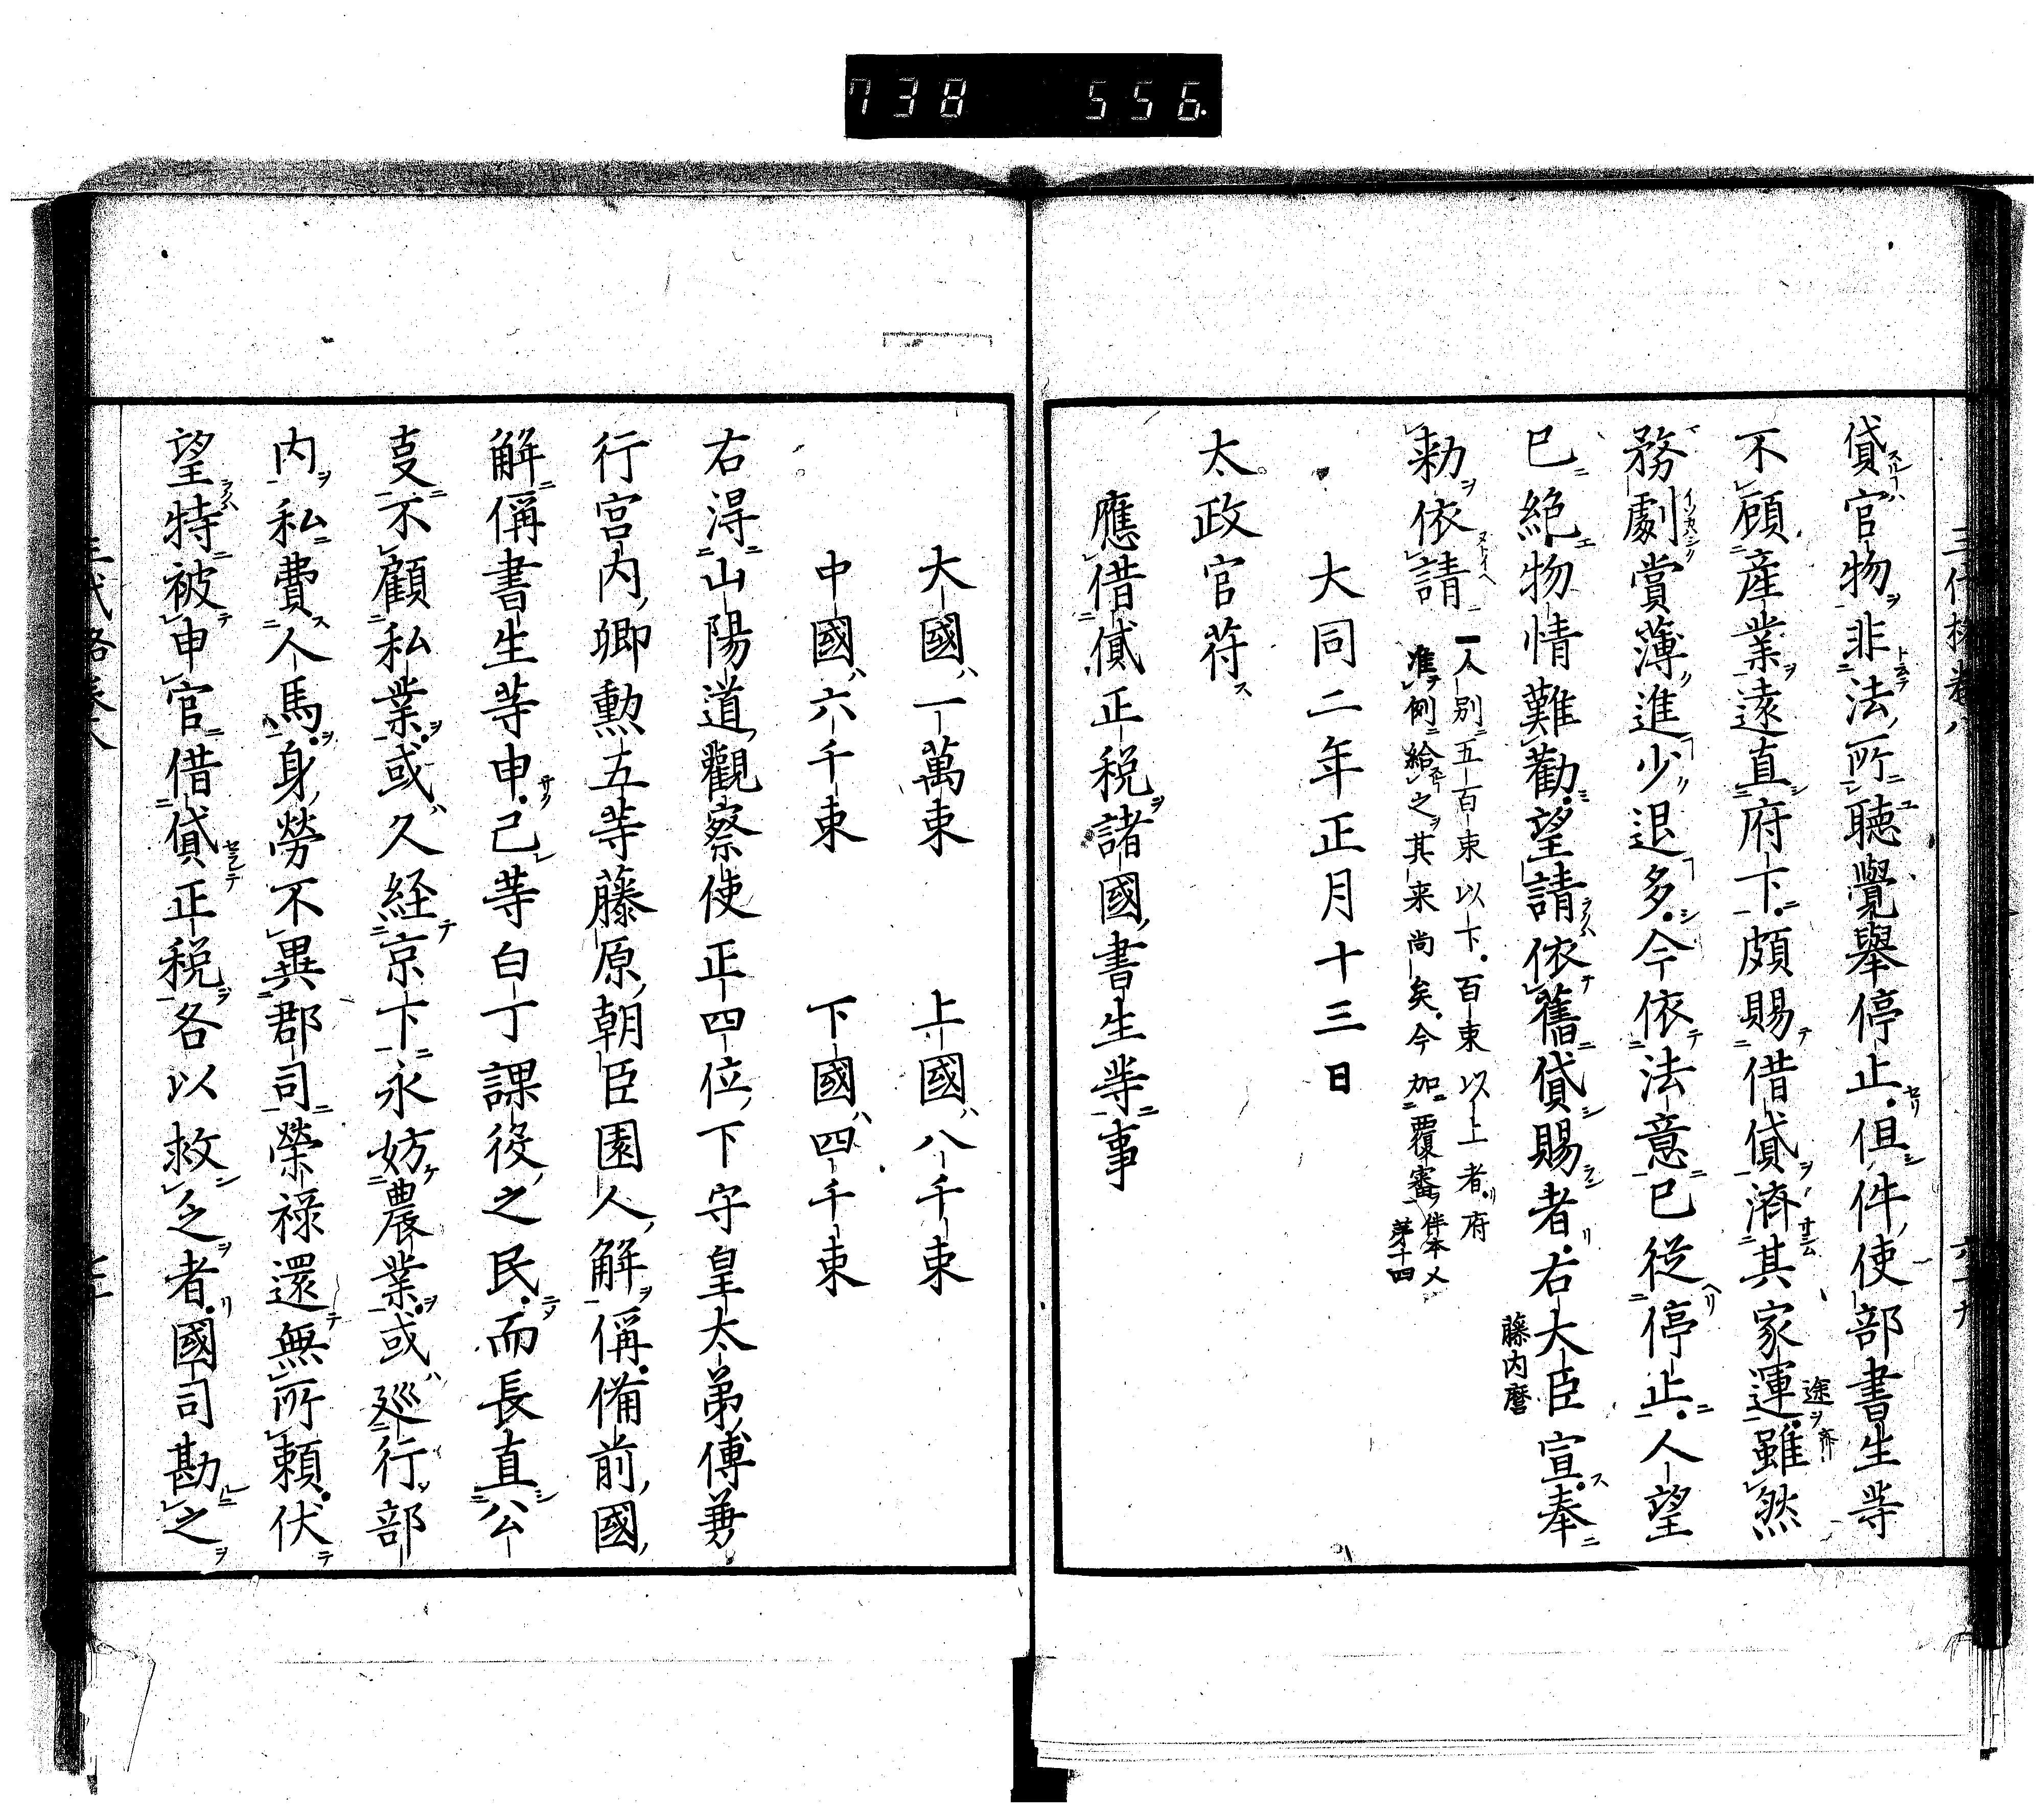 738 556
貸官物非法所聴覺舉停止但件使部書生等
不顧産業遠直府下頗賜借貸濟其家運雖然
途 齊
務劇賞薄進少退多今依法意已從停止人望
已絶物情難勸望請依舊貸賜者右大臣宣奉
藤内麿
勅依請
一人別五百束以下百束以上者府
准例給之其来尚矣今加覆審
第十四
大同二年正月十三日
太政官符
應借貸正税諸國書生等事
大國一萬束 上國八千束
中國六千束 下國四千束
右得山陽道觀察使正四位下守皇太弟傅兼
行宮内卿勲五等藤原朝臣園人解偁備前國
解偁書生等申己等白丁課役之民而長直公
㕝不顧私業或久経京下永妨農業或巡行部
内私費人馬身勞不異郡司榮禄還無所頼伏
望特被申官借貸正税各以救之者國司勘之